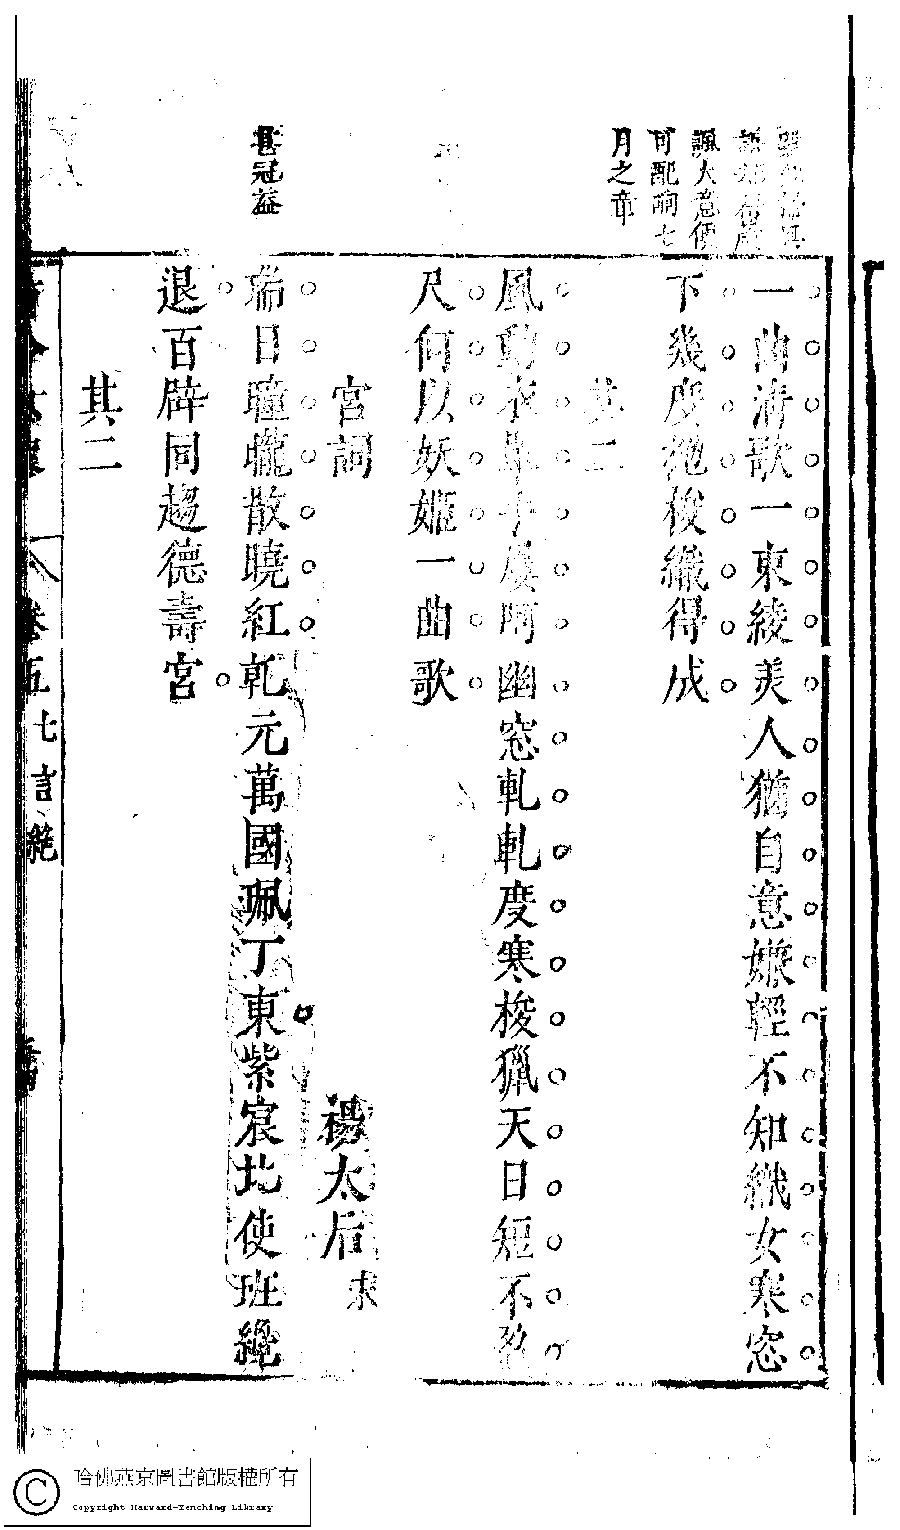 諷大意便
可配豳七
月之章
一曲清歌一東綾美人猶自意嫌輕不知織女寒窓
下幾度抛梭織得成
其二
風動衣單手屢呵幽窓軋軋度寒梭臘天日短不盈
尺何以妖姬一曲歌
宮詞
楊太后 宋
甚冠益
瑞日曈曨散曉紅乾元萬國珮丁東紫宸北使班纔
退百辟同趨德壽宮
其二
卷五
七言絕
哈佛燕京圖書館版權所有
Copyright Harvard-Yenching Library